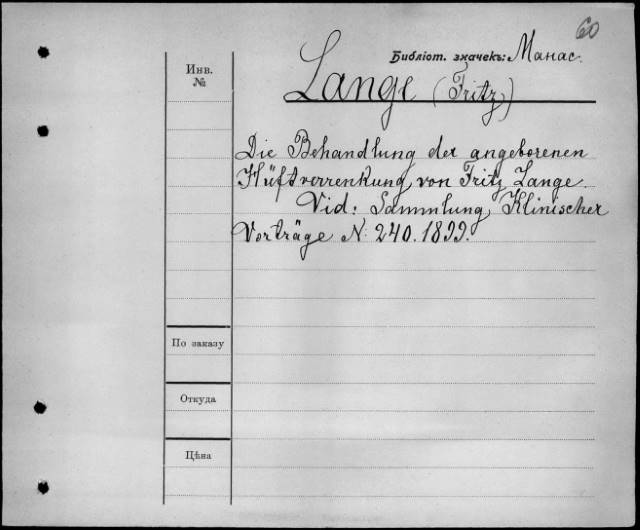 60
Библіот. значекъ: Манас.
Инв. №
Lange (Fritz)
Die Behandlung der angeborenen
Hüftverrenkung von Fritz Lange.
Vid: Sammlung Klinischer
Vorträge N: 240. 1899.
По заказу
Откуда
Цѣна